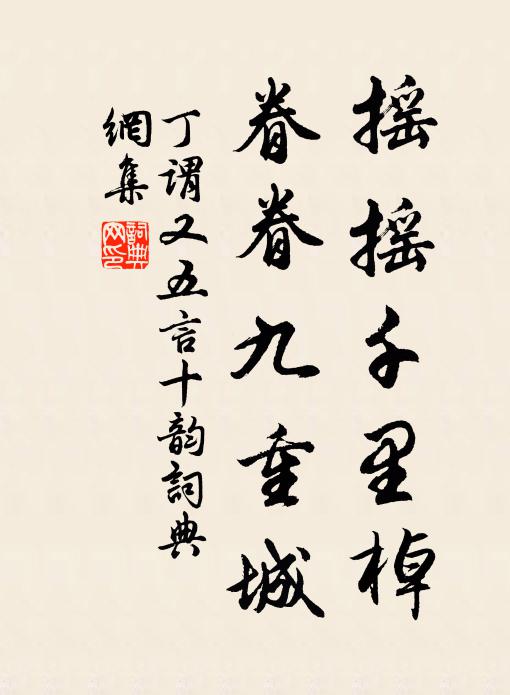 摇摇千里棹
眷眷九重城
丁谓又五言十韵词典
网集
词典网印